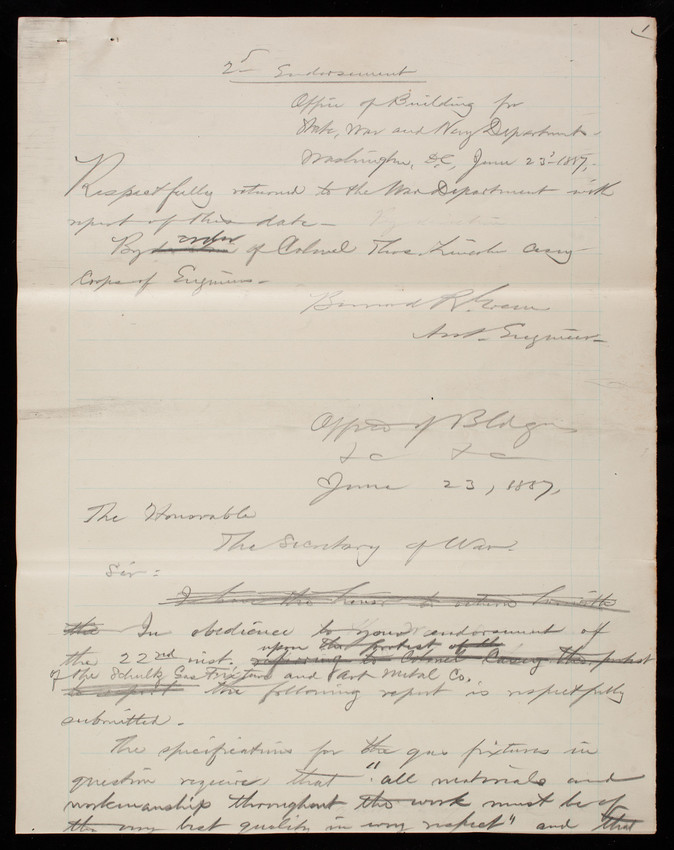 1
2d Endorsement
Office of Building for
State, War and Navy Departments.
Washington, D.C., June 23d 1887.
Respectfully returned to the War Department with
report of this date.
By order of Colonel Thos. Lincoln Casey
Corps of Engineers.
Bernard R. Green
Asst. Engineer.
Office of Bldg
&c &c
June 23, 1887,
The Honorable
The Secretary of War.
Sir:
I have the honor to return herewith
the In obedience to your endorsement of
upon that protest of the
the 22nd inst. referring to Colonel Casey the protest
of the Schulz Gas Fixture and Art Metal Co.
the following report is respectfully
submitted.
The specifications for the gas fixtures in
question require that "all materials and
workmanship throughout the work must be of
the very best quality in every respect" and that